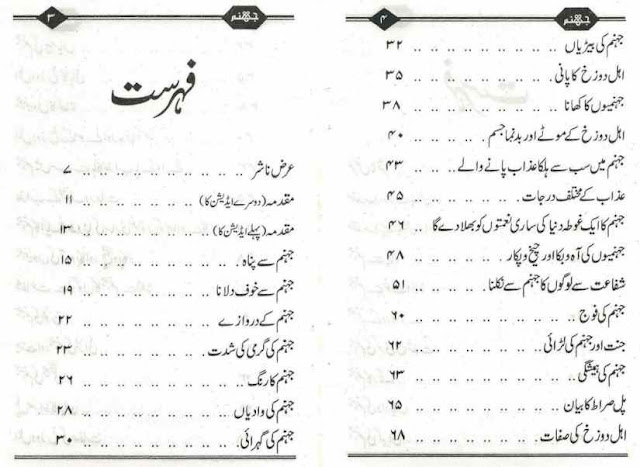 جہنم ۳
فہرست
عرض ناشر ۷
مقدمہ (دوسرے ایڈیشن کا) ۱۱
مقدمہ (پہلے ایڈیشن کا) ۱۳
جہنم سے پناہ ۱۵
جہنم سے خوف دلانا ۱۹
جہنم کے دروازے ۲۲
جہنم کی گرمی کی شدت ۲۳
جہنم کا رنگ ۲۶
جہنم کی وادیاں ۲۸
جہنم کی گہرائی ۳۰
جہنم ۴
جہنم کی بیڑیاں ۳۲
اہل دوزخ کا پانی ۳۵
جہنمیوں کا کھانا ۳۸
اہل دوزخ کے موٹے اور بدنما جسم ۴۰
جہنم میں سب سے ہلکا عذاب پانے والے ۴۳
عذاب کے مختلف درجات ۴۵
جہنم کا ایک غوطہ دنیا کی ساری نعمتوں کو بھلا دے گا ۴۶
جہنمیوں کی آہ و بکا اور چیخ و پکار ۴۸
شفاعت سے لوگوں کا جہنم سے نکلنا ۵۱
جہنم کی فوج ۶۰
جنت اور جہنم کی لڑائی ۶۲
جہنم کی ہمیشگی ۶۳
پل صراط کا بیان ۶۵
اہل دوزخ کی صفات ۶۸